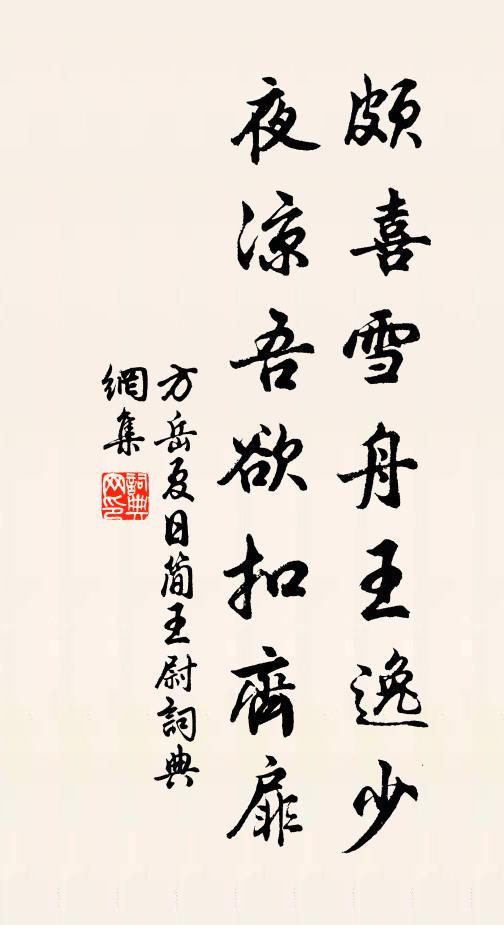 頗喜雪舟王逸少
夜涼吾欲扣齊扉
方岳夏日簡王尉詞典
網集
詞典網印